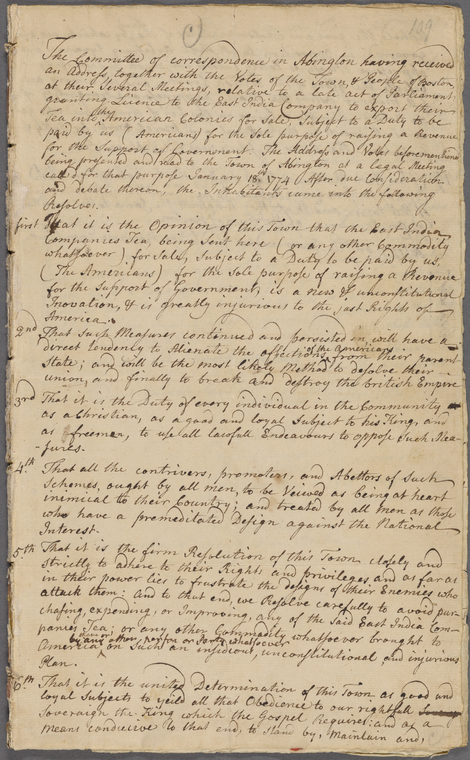 109
The Committee of correspondence in Abington having received
an Address, together with the Votes of the Town, & People of Boston
at their Several Meetings, relative to a late act of Parliament
granting Licence to the East India Company to export their
Tea into the American Colonies for Sale, Subject to a Duty to be
paid by us (Americans) for the Sole purpose of raising a Revenue
for the Support of Government. The Address and Votes beforementioned
being presented and read to the Town of Abington at a Legal Meeting
called for that purpose January 18th 1774 After due Consideration
and debate thereon, the Inhabitants came into the following
Resolves.
first That it is the Opinion of this Town that the East India
Companies Tea, being Sent here (or any other Commodity
whatsoever) for Sale, Subject to a Duty to be paid by us,
(The Americans) for the Sole purpose of raising a Revenue
for the Support of Government, is a new & unconstitutional
Inovation, & is greatly injurious to the just Rights of
America.
2nd That Such Measures continued and persisted in, will have a
direct tendency to Alienate the affections of the Americans from their parent
State; and will be the most likely Method to desolve their
union, and finally to break and destroy the British Empire
3rd That it is the Duty of every individual in the Community
as a Christian, as a good and loyal Subject to his King, and
as a freeman, to use all lawfull Endeavours to oppose Such Mea-
sures.
4th That all the contrivers, promoters, and Abettors of Such
Schemes, ought by all men, to be Veiwed as being at heart
inimical to their Country; and treated by all men as those
who have a premeditated Design against the National
Interest.
5th That it is the firm Resolution of this Town closely and
Strictly to adhere to their Rights and privileges and as far as
in their power lies to frustrate the designs of their Enemies who
attack them: And to that end, we Resolve carefully to avoid pur-
chasing, expending, or Improving, any of the Said East India Com-
panies Tea; or any other Commodity whatsoever brought to
America by any other person or Party whatsoever on Such an insidious, unconstitutional and injurious
Plan.
6th That it is the united Determination of this Town as good and
loyal Subjects to yeild all that Obedience to our rightfull
Soveraign the King which the Gospel Requires: and as a
means conducive to that end, to Stand by, Maintain and,